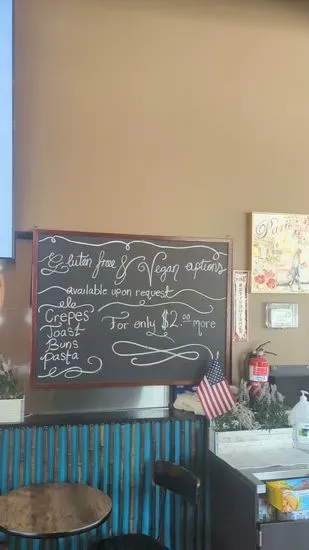 Gluten free & Vegan options
available upon request
ele
Crepes
Toast
Buns
pasta
For only $2.00 more
Paris